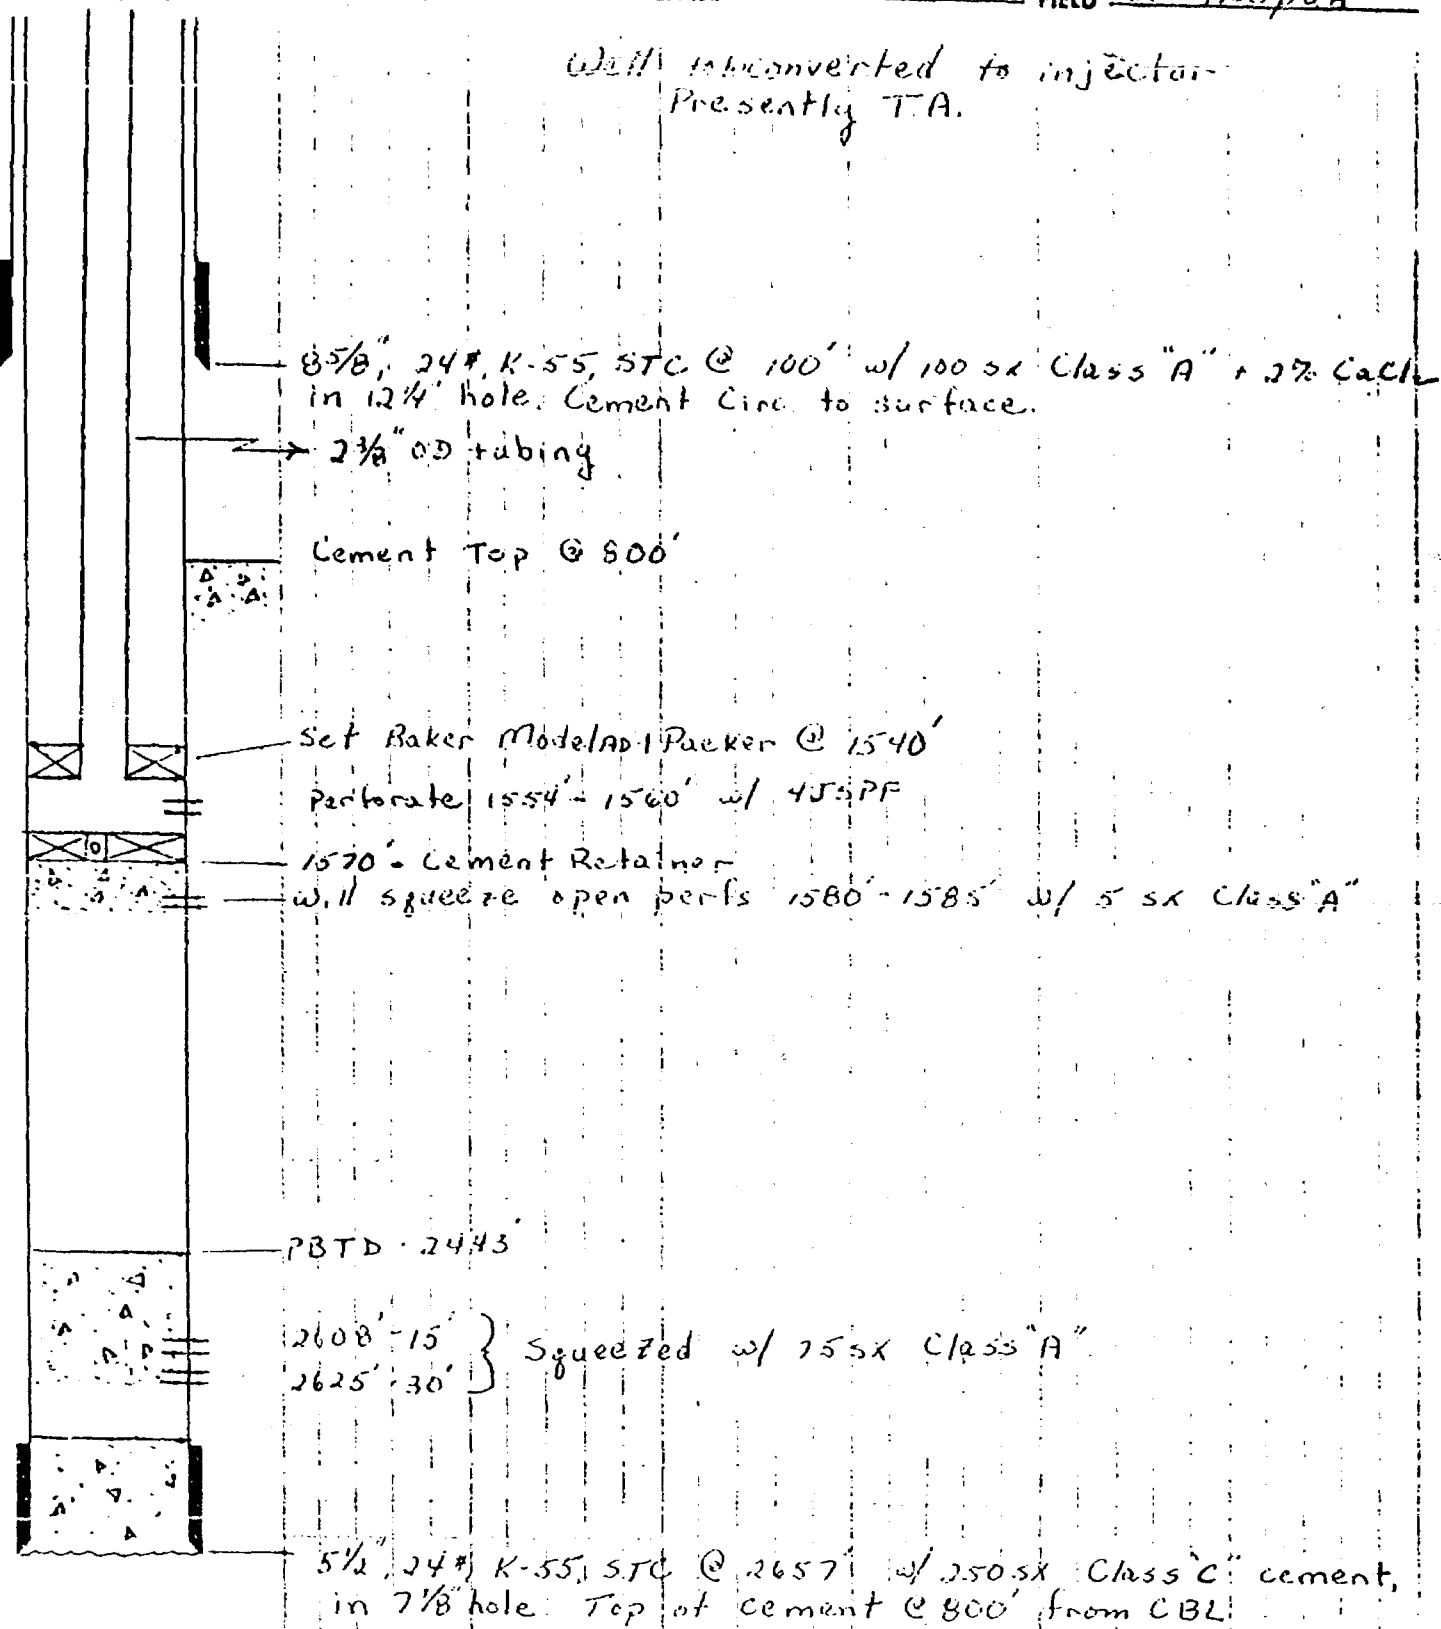 FIELD
Well to be converted to injector
Presently T.A.
8 5/8", 24#, K-55, STC @ 100' w/ 100 sx Class "A" + 2% CaCl2
in 12 1/4" hole. Cement Circ. to surface.
2 3/8" OD tubing
Cement Top @ 800'
Set Baker Model AD-1 Packer @ 1540'
Perforate 1554'-1560' w/ 4JSPF
1570' - Cement Retainer
Will squeeze open perfs 1580'-1585' w/ 5 sx Class "A"
PBTD - 2443'
2608'-15'
2625'-30' } Squeezed w/ 75 sx Class "A"
5 1/2", 24#, K-55, STC @ 2657' w/ 250 sx Class "C" cement,
in 7 7/8" hole. Top of cement @ 800' from CBL